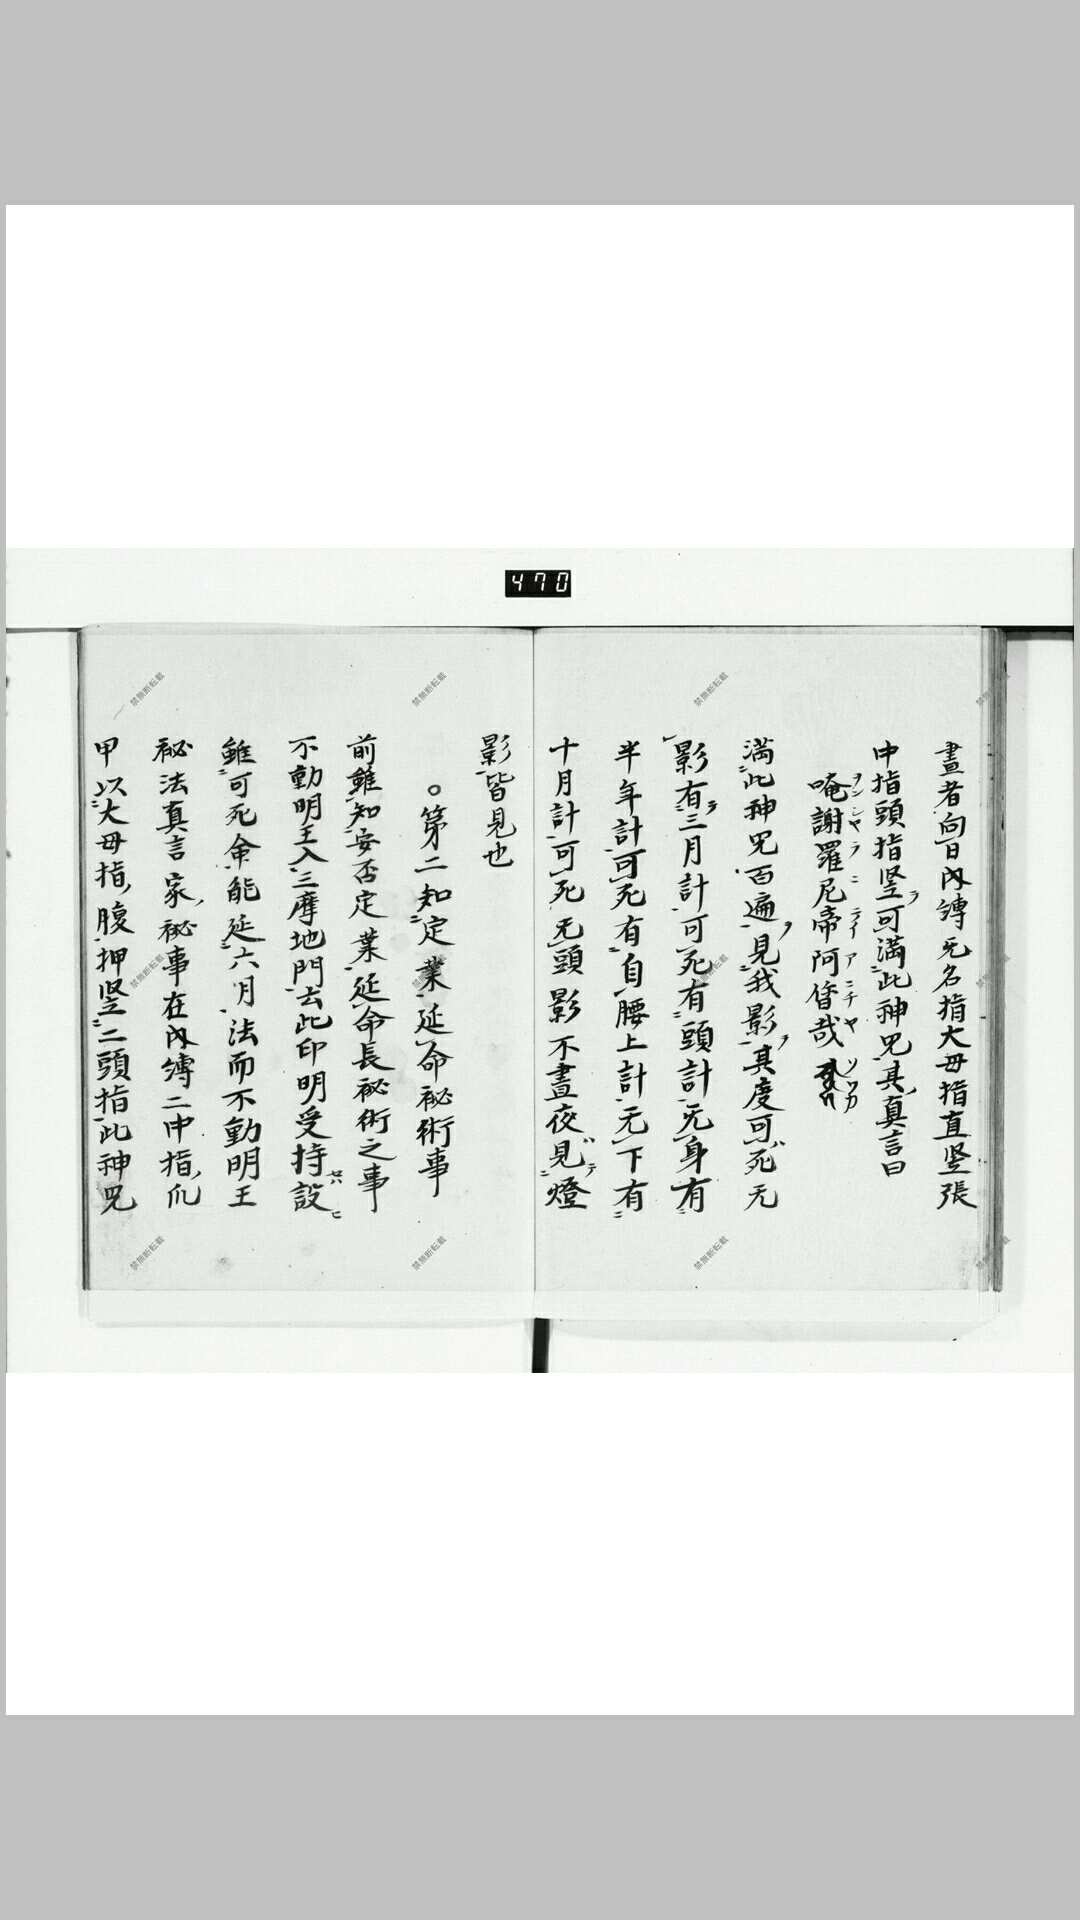 470
晝者向日内縛无名指大母指直竪張
中指頭指竪可満此神呪其真言曰
唵謝羅尼帝阿偹哉
ヲンシャラニテイアニチヤソワカ
満此神呪百遍見我影其度可死无
影有三月計可死有頭計无身有
半年計可死有自腰上計无下有
十月計可死无頭影不晝夜見燈
影皆見也
○第二知定業延命秘術事
前雖知安否定業延命長秘術之事
不動明王入三摩地門去此印明受持設
雖可死命能延六月法而不動明王
秘法真言家秘事在内縛二中指爪
甲以大母指腹押竪二頭指此神呪
禁無断転載